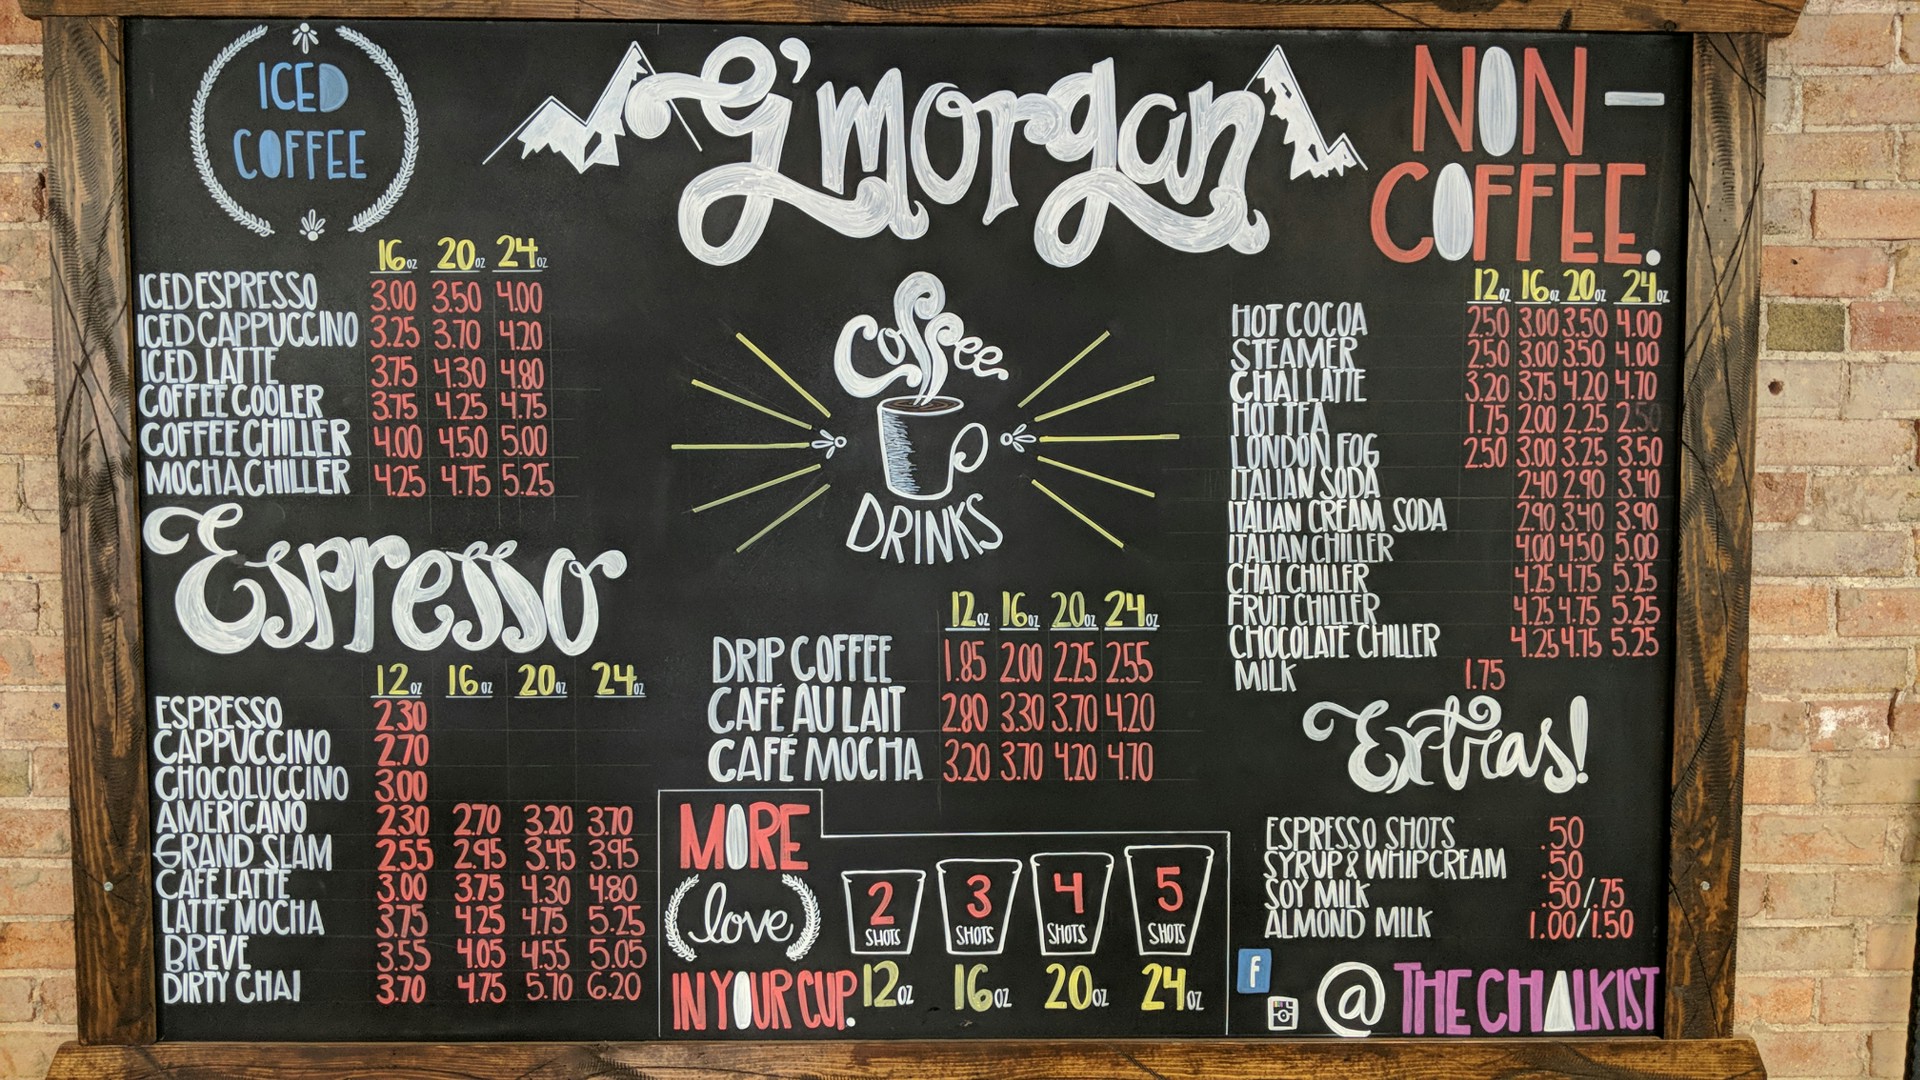 ICED
COFFEE
16oz 20oz 24oz
ICED ESPRESSO 3.00 3.50 4.00
ICED CAPPUCCINO 3.25 3.70 4.20
ICED LATTE 3.75 4.30 4.80
COFFEE COOLER 3.75 4.25 4.75
COFFEE CHILLER 4.00 4.50 5.00
MOCHA CHILLER 4.25 4.75 5.25
Espresso
12oz 16oz 20oz 24oz
ESPRESSO 2.30
CAPPUCCINO 2.70
CHOCOLUCCINO 3.00
AMERICANO 2.30 2.70 3.20 3.70
GRAND SLAM 2.55 2.95 3.45 3.95
CAFE LATTE 3.00 3.75 4.30 4.80
LATTE MOCHA 3.75 4.25 4.75 5.25
BREVE 3.55 4.05 4.55 5.05
DIRTY CHAI 3.70 4.75 5.70 6.20
G'morgan
Coffee
DRINKS
12oz 16oz 20oz 24oz
DRIP COFFEE 1.85 2.00 2.25 2.55
CAFÉ AU LAIT 2.80 3.30 3.70 4.20
CAFÉ MOCHA 3.20 3.70 4.20 4.70
MORE
love
IN YOUR CUP.
2 3 4 5
SHOTS SHOTS SHOTS SHOTS
12oz 16oz 20oz 24oz
NON-
COFFEE.
12oz 16oz 20oz 24oz
HOT COCOA 2.50 3.00 3.50 4.00
STEAMER 2.50 3.00 3.50 4.00
CHAI LATTE 3.20 3.75 4.20 4.70
HOT TEA 1.75 2.00 2.25 2.50
LONDON FOG 2.50 3.00 3.25 3.50
ITALIAN SODA 2.40 2.90 3.40
ITALIAN CREAM SODA 2.90 3.40 3.90
ITALIAN CHILLER 4.00 4.50 5.00
CHAI CHILLER 4.25 4.75 5.25
FRUIT CHILLER 4.25 4.75 5.25
CHOCOLATE CHILLER 4.25 4.75 5.25
MILK 1.75
Extras!
ESPRESSO SHOTS .50
SYRUP & WHIPCREAM .50
SOY MILK .50/.75
ALMOND MILK 1.00/1.50
f @THE CHALKIST